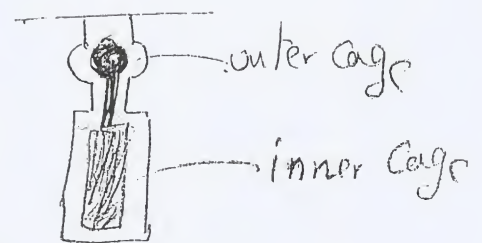 outer cage
inner cage